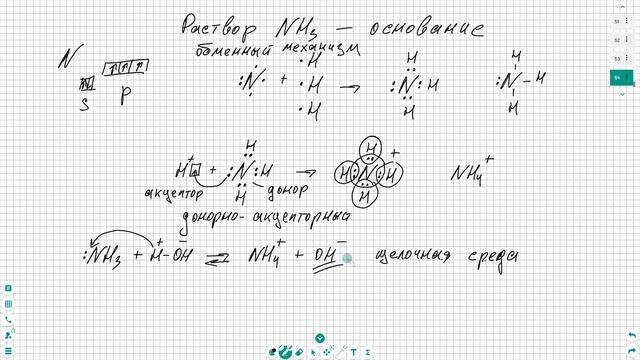 Раствор NH3 — основание
бменный механизм
N
s p
:N· + ·H ·H ·H → H :N:H H H :N-H H
H+ + :N:H H H → H H:N:H H + NH4+
акцептор донор
донорно-акцепторный
:NH3 + H+-OH- ⇌ NH4+ + OH- щелочная среда
51
52
53
54